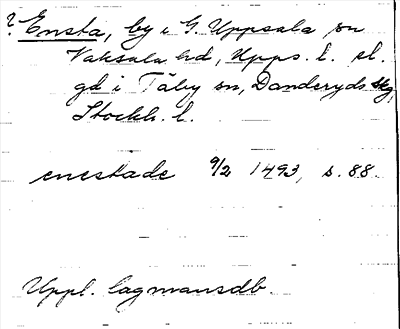 ? Ensta, by i G. Uppsala sn
Vaksala hd, Upps. l. el.
gd i Täby sn, Danderyds skg,
Stockh. l.
enestade 9/2 1493, s. 88.
Uppl. lagmansdb.